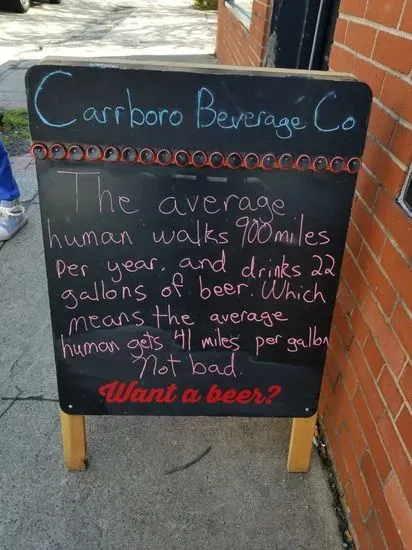 Carrboro Beverage Co
The average
human walks 900 miles
per year, and drinks 22
gallons of beer. Which
means the average
human gets 41 miles per gallon
Not bad.
Want a beer?